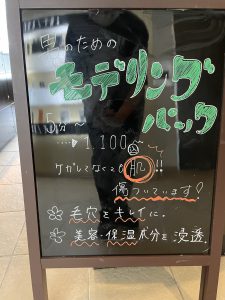 のための
モデリング
パック
5分〜
1,100円
ケガしてなくても肌!!
傷ついています!
毛穴をキレイに。
美容・保湿成分を浸透。